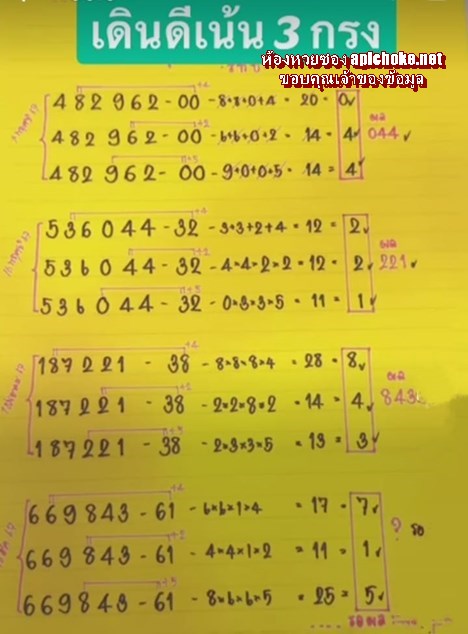 เดินดีเน้น 3 กรง
ห้องหวยซอง apichoke.net
ขอบคุณเจ้าของข้อมูล
+4
482 962 - 00 - 8+8+0+4 = 20 = 0
+2
482 962 - 00 - 6+6+0+2 = 14 = 4 ผล 044
+5
482 962 - 00 - 9+0+0+5 = 14 = 4
+4
536 044 - 32 - 3+3+2+4 = 12 = 2
+2
536 044 - 32 - 4+4+2+2 = 12 = 2 ผล 221
+5
536 044 - 32 - 0+3+3+5 = 11 = 1
+4
187 221 - 38 - 8+8+8+4 = 28 = 8
+2
187 221 - 38 - 2+2+8+2 = 14 = 4 ผล 843
+5
187 221 - 38 - 2+3+3+5 = 13 = 3
+4
669 843 - 61 - 6+6+1+4 = 17 = 7
+2
669 843 - 61 - 4+4+1+2 = 11 = 1 ? รอ
+5
669 843 - 61 - 8+6+6+5 = 25 = 5
รอผล